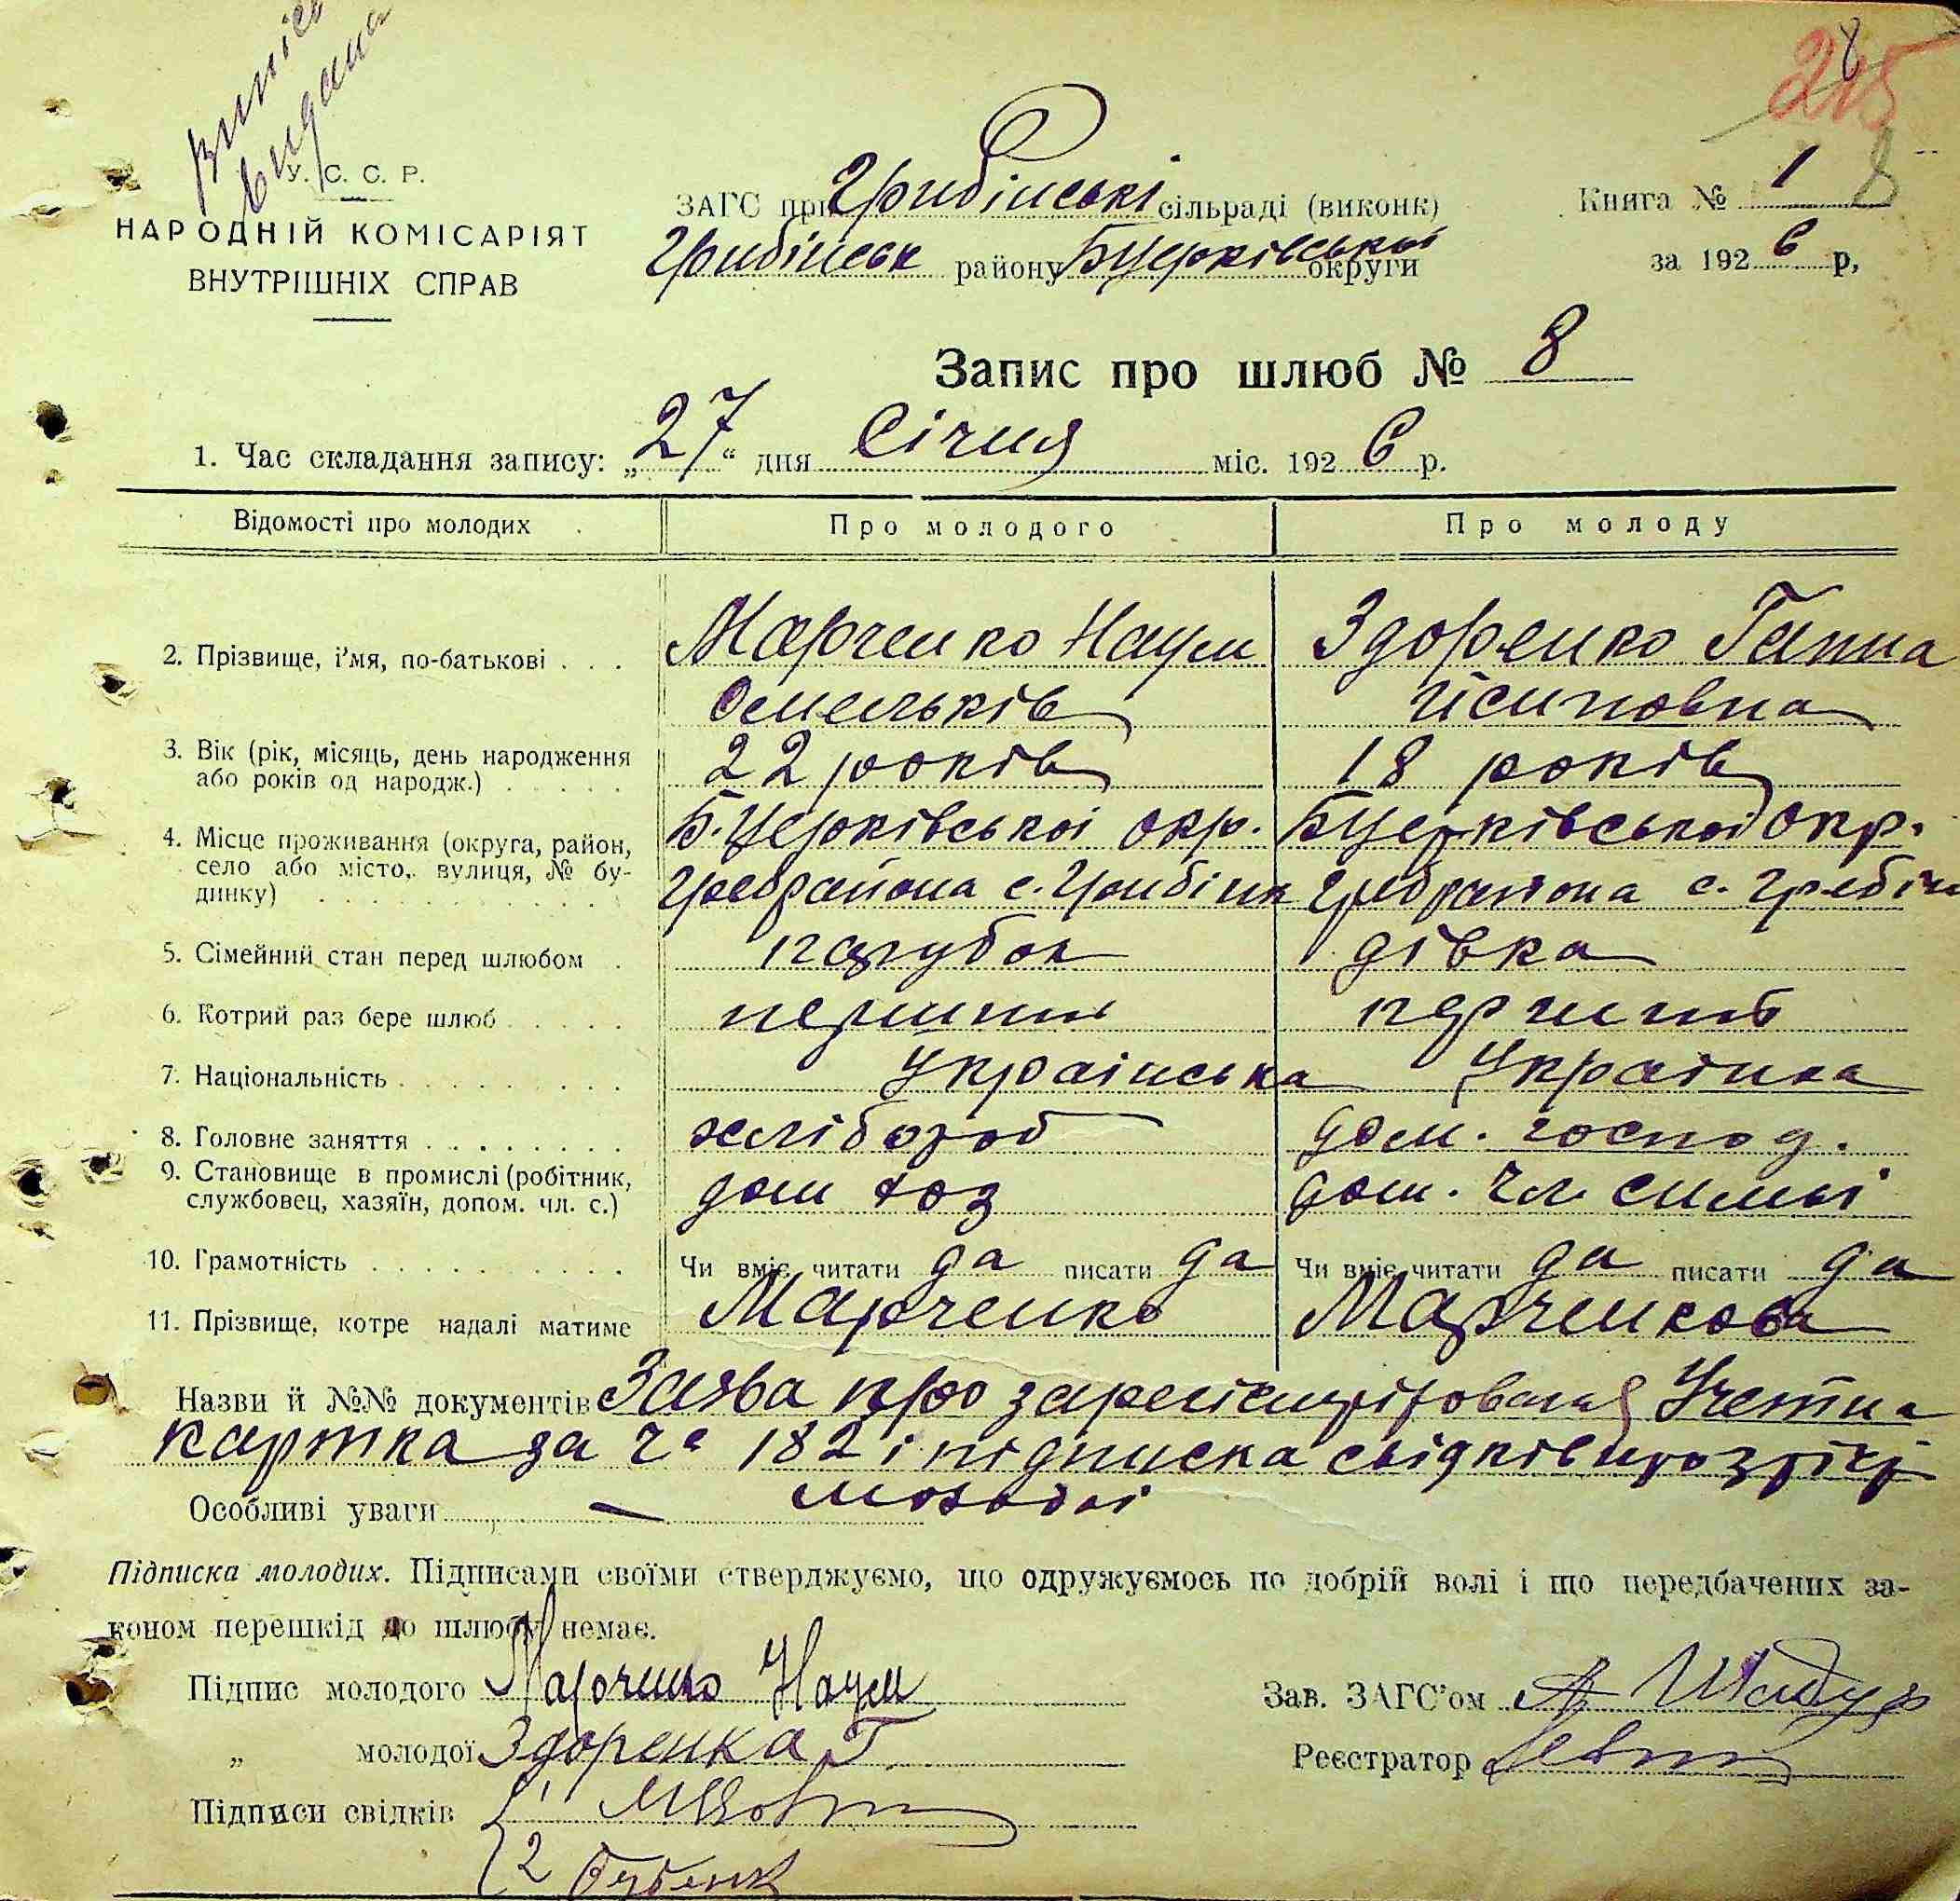 випись
видана
У. С. С. Р.
НАРОДНІЙ КОМІСАРІЯТ
ВНУТРІШНІХ СПРАВ
215
8
ЗАГС при Грибінські сільраді (виконк)
Грибінськ району БЦерківської округи
Книга № 1
за 1926 р,
Запис про шлюб № 8
1. Час складання запису: „27“ дня Січня міс. 1926 р.
Відомості про молодих Про молодого Про молоду
2. Прізвище, і'мя, по-батькові . . . Марченко Наум Здоренко Ганна
Омельків Йсиповна
3. Вік (рік, місяць, день народження
або років од народж.) 22 років 18 років
4. Місце проживання (округа, район, Б.Церківської окр. БЦерківської окр.
село або місто, вулиця, № бу-
динку) Гребрайона с. Грибінк Гребрайона с. Гребінк
5. Сімейний стан перед шлюбом . парубок дівка
6. Котрий раз бере шлюб перший перший
7. Національність Українська Українка
8. Головне заняття хлібороб дом. господ.
9. Становище в промислі (робітник,
службовец, хазяїн, допом. чл. с.) дом хоз дом. чл. симьі
10. Грамотність Чи вміє читати да писати да Чи вміє читати да писати да
11. Прізвище, котре надалі матиме Марченко Марченкова
Назви й №№ документів Заява про Учетна
картка за Чо 182 і підписка свідків про
Особливі уваги — молодої
Підписка молодих. Підписами своїми стверджуємо, що одружуємось по добрій волі і що передбачених за-
коном перешкід до шлюбу немає.
Підпис молодого Марченко Наум
Зав. ЗАГС'ом
„ молодої Здоренка Г
Реєстратор
Підписи свідків 1
2 Бубенк